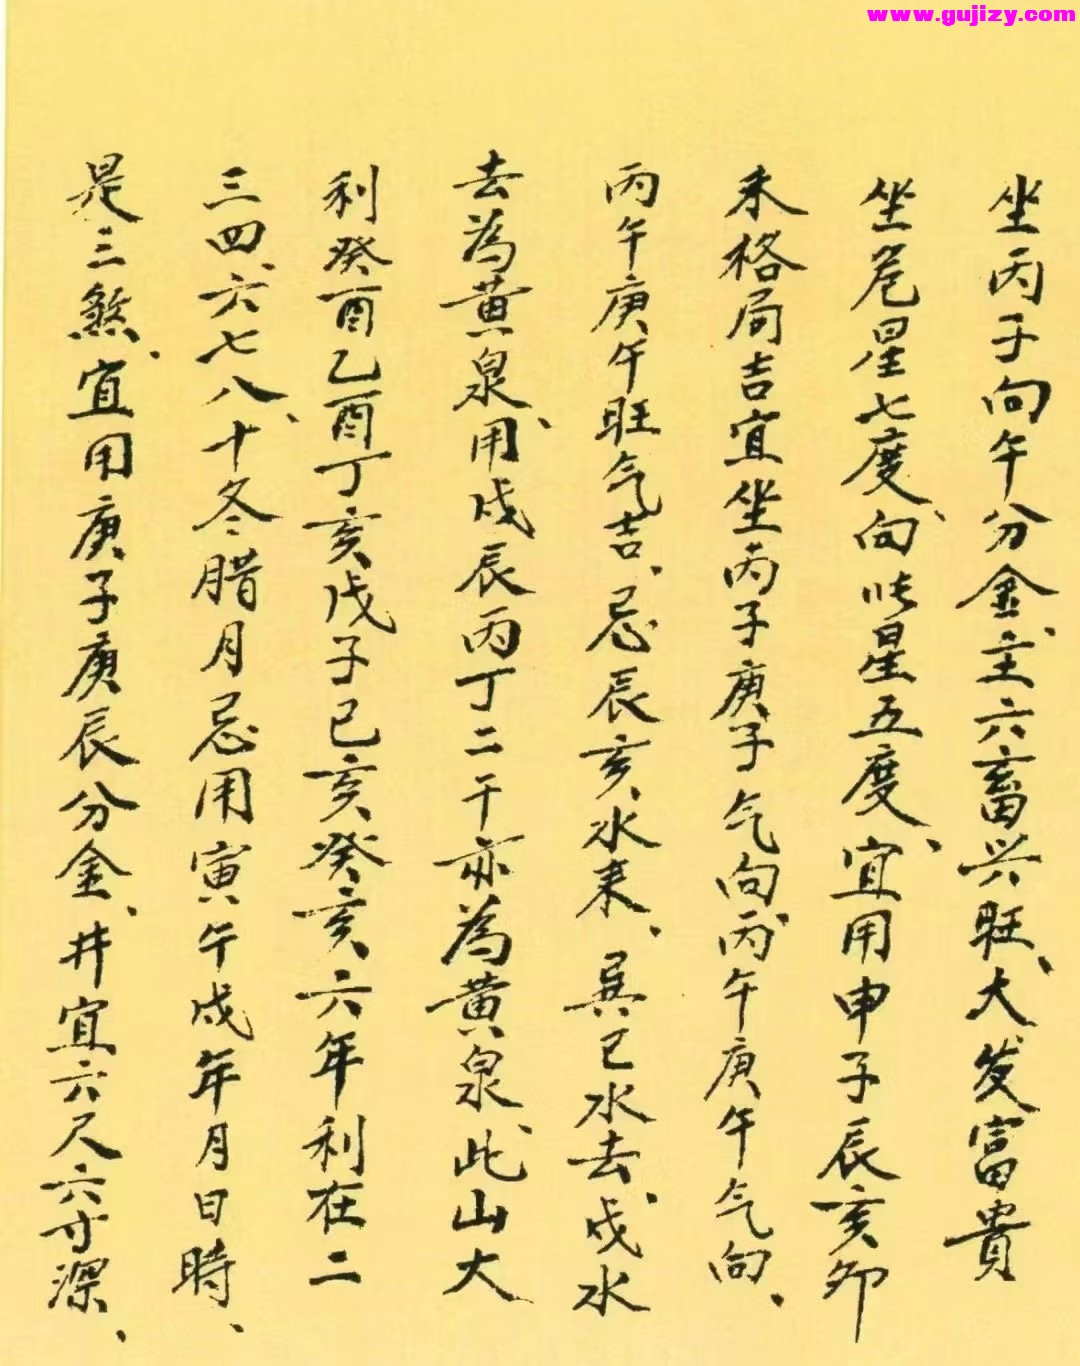 www.gujizy.com
坐丙子向午分金、主六畜兴旺、大发富貴
坐危星七度、向 星五度、宜用申子辰亥卯
未格局吉宜坐丙子庚子气向丙午庚午气向、
丙午庚午旺气吉、忌辰亥水来、巽巳水去、戌水
去為黄泉、用戌辰丙丁二干亦為黄泉、此山大
利癸酉乙酉丁亥戊子己亥癸亥六年利在二
三四、六七八、十冬腊月忌用寅午戌年月日時、
是三煞、宜用庚子庚辰分金、井宜六尺六寸深、